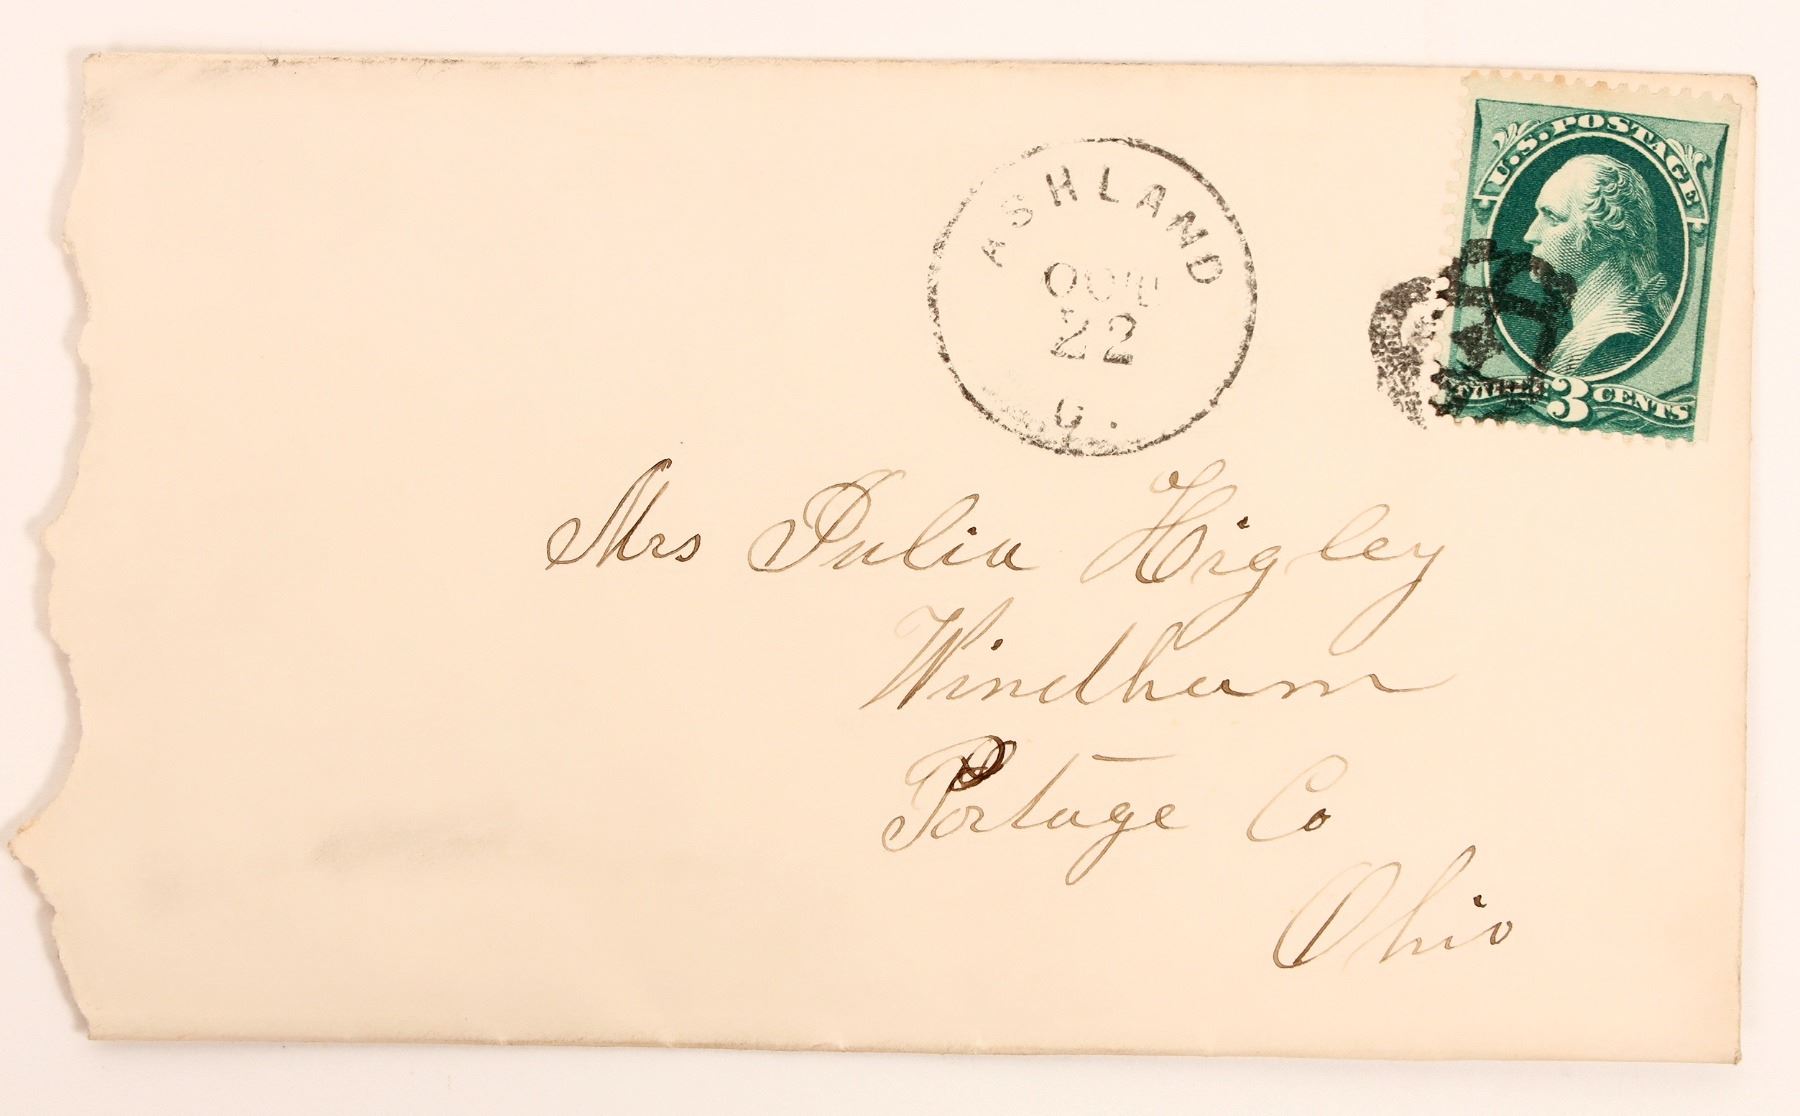 U.S. POSTAGE
3 CENTS
ASHLAND
22
O.
Mrs Julia Higley
Windham
Portage Co
Ohio